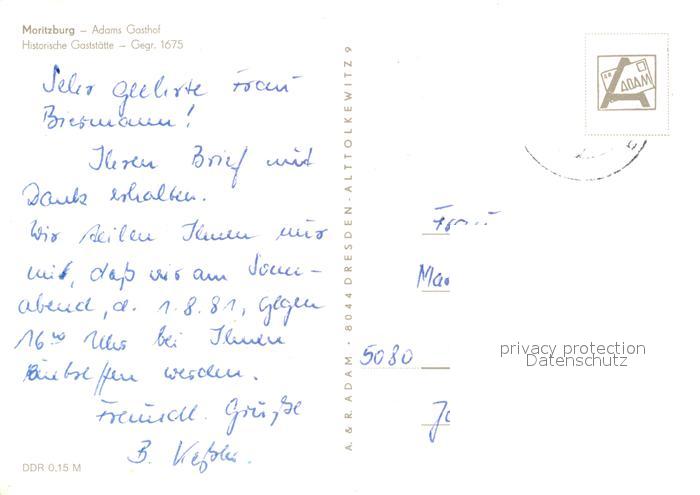 Moritzburg – Adams Gasthof
Historische Gaststätte – Gegr. 1675
Sehr geehrte Frau
Biermann!
Ihren Brief mit
Dank erhalten.
Wir teilen Ihnen nur
mit, daß wir am Sonn-
abend, d. 1.8.81, gegen
16⁰⁰ Uhr bei Ihnen
eintreffen werden.
Freundl. Grüße
B.
DDR 0,15 M
A. & R. ADAM · 8044 DRESDEN-ALTTOLKEWITZ 9
ADAM
Frau
Mar
5080
privacy protection
Datenschutz